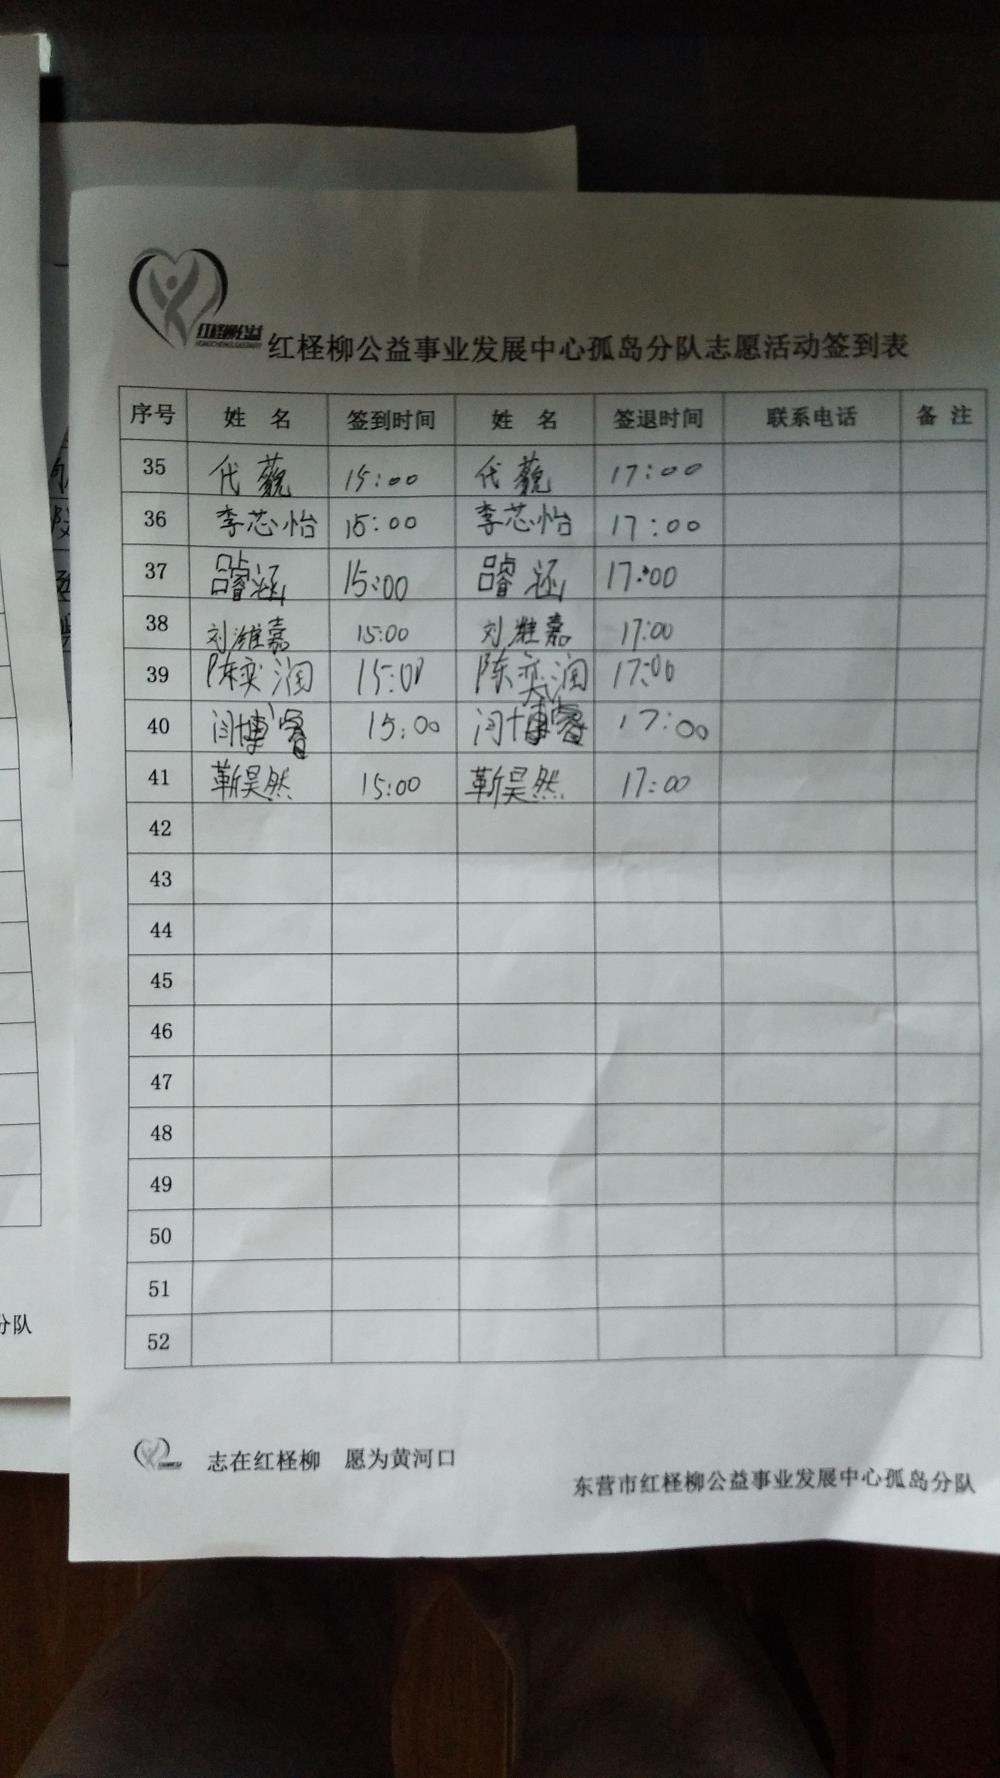 红柽柳公益
红柽柳公益事业发展中心孤岛分队志愿活动签到表
序号 姓 名 签到时间 姓 名 签退时间 联系电话 备 注
35 代藐 15:00 代藐 17:00
36 李芯怡 15:00 李芯怡 17:00
37 吕睿涵 15:00 吕睿涵 17:00
38 刘潍嘉 15:00 刘潍嘉 17:00
39 陈奕润 15:00 陈奕润 17:00
40 闫博睿 15:00 闫博睿 17:00
41 靳昊然 15:00 靳昊然 17:00
42
43
44
45
46
47
48
49
50
51
52
志在红柽柳 愿为黄河口
东营市红柽柳公益事业发展中心孤岛分队
分队